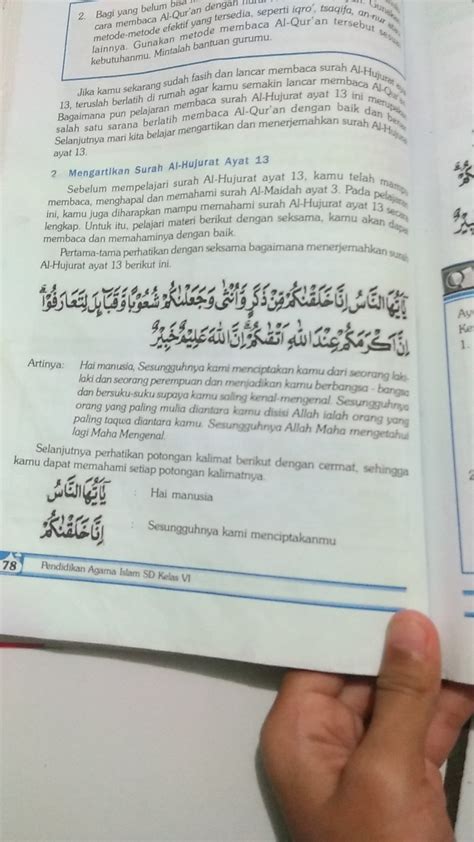 2. Bagi yang belum bisa
cara membaca Al-Qur'an dengan
metode-metode efektif yang tersedia, seperti iqro', tsaqifa, an-nur
lainnya. Gunakan metode membaca Al-Qur'an tersebut
kebutuhanmu. Mintalah bantuan gurumu.
Jika kamu sekarang sudah fasih dan lancar membaca surah Al-Hujurat ayat
13, teruslah berlatih di rumah agar kamu semakin lancar membaca Al-Qur'an.
Bagaimana pun pelajaran membaca surah Al-Hujurat ayat 13 ini merupakan
salah satu sarana berlatih membaca Al-Qur'an dengan baik dan
Selanjutnya mari kita belajar mengartikan dan menerjemahkan surah Al-Hujurat
ayat 13.
2 Mengartikan Surah Al-Hujurat Ayat 13
Sebelum mempelajari surah Al-Hujurat ayat 13, kamu telah mampu
membaca, menghapal dan memahami surah Al-Maidah ayat 3. Pada pelajaran
ini, kamu juga diharapkan mampu memahami surah Al-Hujurat ayat 13 secara
lengkap. Untuk itu, pelajari materi berikut dengan seksama, kamu akan dapat
membaca dan memahaminya dengan baik.
Pertama-tama perhatikan dengan seksama bagaimana menerjemahkan surah
Al-Hujurat ayat 13 berikut ini.
يَٰٓأَيُّهَا النَّاسُ إِنَّا خَلَقْنٰكُمْ مِّنْ ذَكَرٍ وَّأُنْثٰى وَجَعَلْنٰكُمْ شُعُوْبًا وَّقَبَآئِلَ لِتَعَارَفُوْا ۚ
إِنَّ أَكْرَمَكُمْ عِنْدَ اللّٰهِ أَتْقٰكُمْ ۗ إِنَّ اللّٰهَ عَلِيْمٌ خَبِيْرٌ
Artinya: Hai manusia, Sesungguhnya kami menciptakan kamu dari seorang laki-
laki dan seorang perempuan dan menjadikan kamu berbangsa - bangsa
dan bersuku-suku supaya kamu saling kenal-mengenal. Sesungguhnya
orang yang paling mulia diantara kamu disisi Allah ialah orang yang
paling taqwa diantara kamu. Sesungguhnya Allah Maha mengetahui
lagi Maha Mengenal.
Selanjutnya perhatikan potongan kalimat berikut dengan cermat, sehingga
kamu dapat memahami setiap potongan kalimatnya.
يَٰٓأَيُّهَا النَّاسُ : Hai manusia
إِنَّا خَلَقْنٰكُمْ : Sesungguhnya kami menciptakanmu
78 Pendidikan Agama Islam SD Kelas VI
Ay
Ke
1.